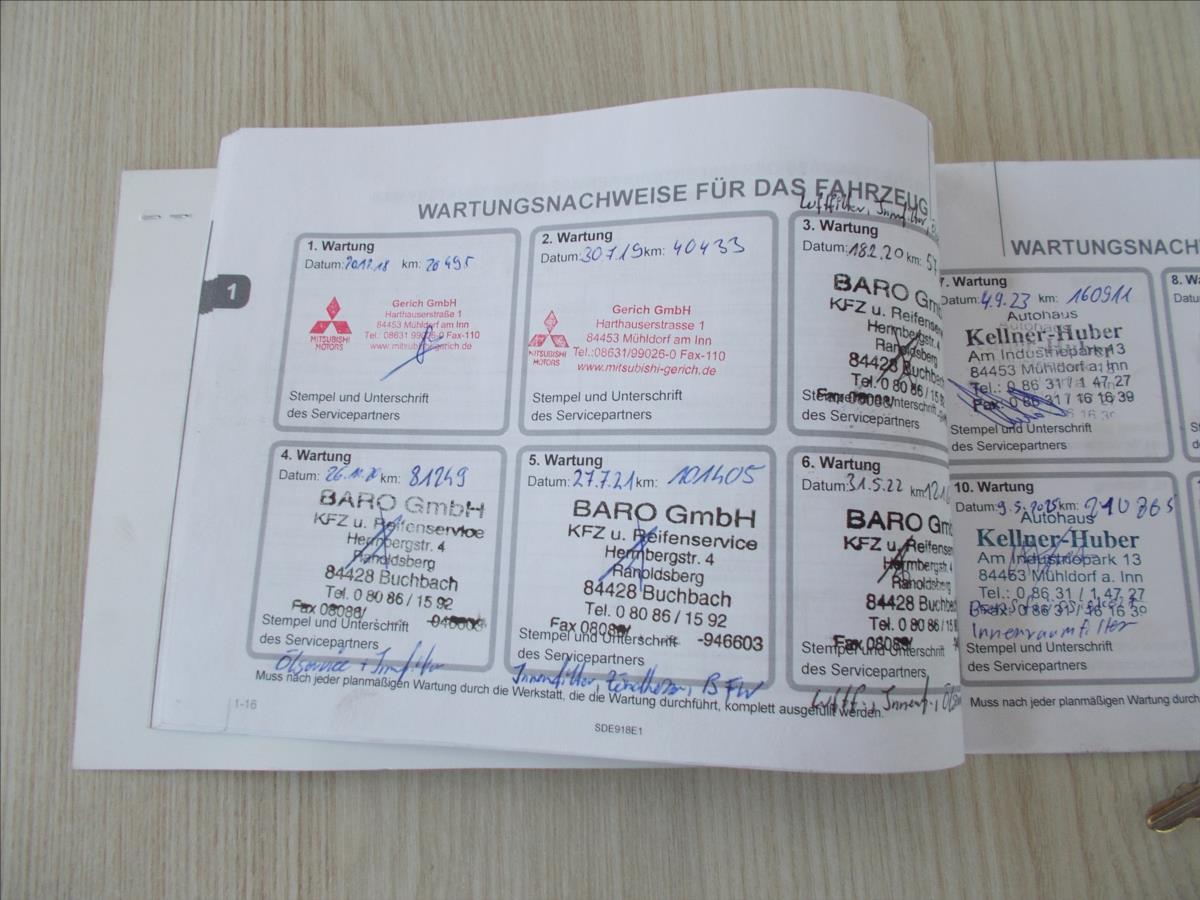 WARTUNGSNACHWEISE FÜR DAS FAHRZEUG
Luftfilter, Innenfilter,
1
1. Wartung
Datum: 20.12.18 km: 20495
MITSUBISHI
MOTORS
Gerich GmbH
Harthauserstraße 1
84453 Mühldorf am Inn
Tel.: 08631 99026-0 Fax-110
www.mitsubishi-gerich.de
Stempel und Unterschrift
des Servicepartners
2. Wartung
Datum: 30.7.19 km: 40433
MITSUBISHI
MOTORS
Gerich GmbH
Harthauserstrasse 1
84453 Mühldorf am Inn
Tel.:08631/99026-0 Fax-110
www.mitsubishi-gerich.de
Stempel und Unterschrift
des Servicepartners
3. Wartung
Datum: 18.2.20 km: 57
BARO Gm
KFZ u. Reifenservice
Hermbergstr. 4
Ranoldsberg
84428 Buchbach
Tel. 0 80 86 / 15 92
Stempel und Unterschrift
des Servicepartners
4. Wartung
Datum: 26.11.20 km: 81249
BARO GmbH
KFZ u. Reifenservice
Hermbergstr. 4
Ranoldsberg
84428 Buchbach
Tel. 0 80 86 / 15 92
Fax 08086/
Stempel und Unterschrift
des Servicepartners
Ölservice + Innenfilter
5. Wartung
Datum: 27.7.21 km: 101405
BARO GmbH
KFZ u. Reifenservice
Hermbergstr. 4
Ranoldsberg
84428 Buchbach
Tel. 0 80 86 / 15 92
Fax 08086/ -946603
Stempel und Unterschrift
des Servicepartners
Innenfilter, Zündkerzen, BFW
6. Wartung
Datum: 31.5.22 km 1216
BARO Gm
KFZ u. Reifenser
Hermbergstr. 4
Ranoldsberg
84428 Buchb
Tel. 0 80 86 / 15
Fax 08086/
Stempel und Unterschrift
des Servicepartners
Luftf., Innenf., Öls
Muss nach jeder planmäßigen Wartung durch die Werkstatt, die die Wartung durchführt, komplett ausgefüllt werden.
1-16
SDE918E1
WARTUNGSNACH
7. Wartung
Datum: 4.9.23 km: 160911
Autohaus
Kellner-Huber
Am Industriepark 13
84453 Mühldorf a. Inn
Tel.: 0 86 31 / 1 47 27
Fax: 0 86 31 / 16 16 39
Stempel und Unterschrift
des Servicepartners
8. Wa
Datu
10. Wartung
Datum: 9.5.2025 km: 210865
Autohaus
Kellner-Huber
Am Industriepark 13
84453 Mühldorf a. Inn
Tel.: 0 86 31 / 1 47 27
Fax: 0 86 31 / 16 16 39
Bremsflüssigkeit
Innenraumfilter
Stempel und Unterschrift
des Servicepartners
Muss nach jeder planmäßigen Wartung durch